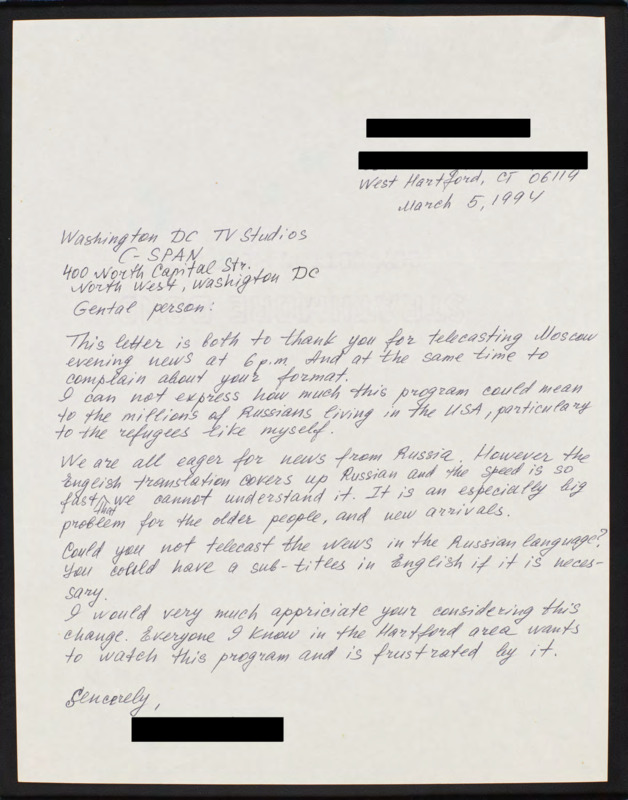 West Hartford, CT 06119
March 5, 1994
Washington DC TV Studios
C-SPAN
400 North Capital Str.
North West, Washigton DC
Gental person:
This letter is both to thank you for telecasting Moscow
evening news at 6 p.m. And at the same time to
complain about your format.
I can not express how much this program could mean
to the millions of Russians living in the USA, particulary
to the refugees like myself.
We are all eager for news from Russia. However the
English translation covers up Russian and the speed is so
fast that we cannot understand it. It is an especially big
problem for the older people, and new arrivals.
Could you not telecast the News in the Russian language?
You could have a sub-titles in English if it is neces-
sary.
I would very much appriciate your considering this
change. Everyone I know in the Hartford area wants
to watch this program and is frustrated by it.
Sencerely,